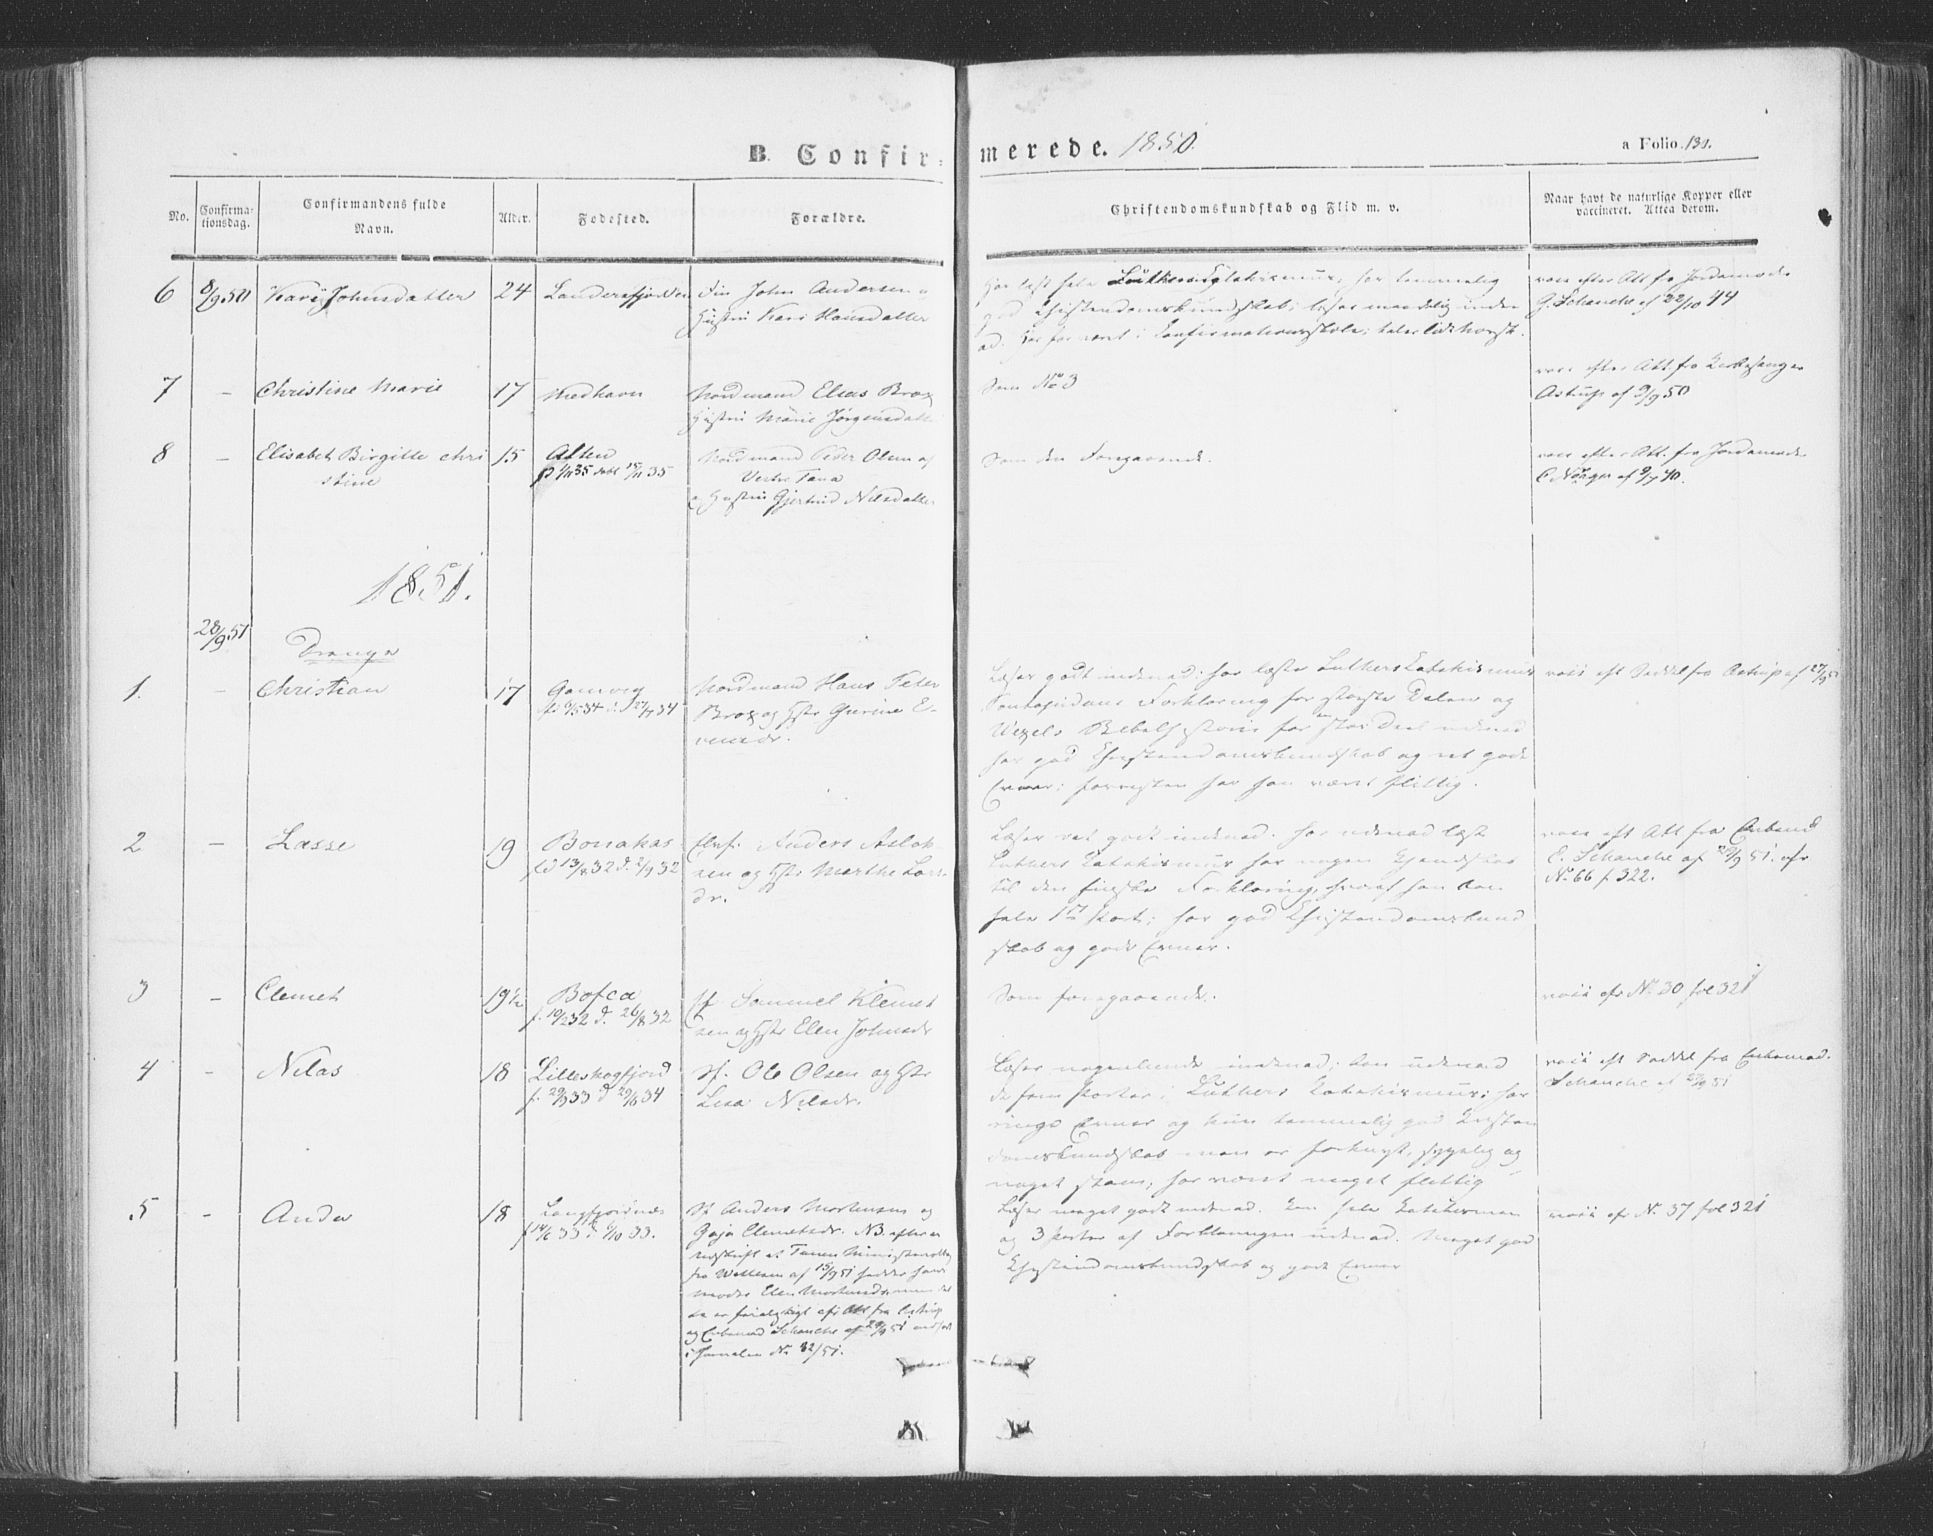 B. Confirmerede. 1850.
a Folio 131.
No.
Confirma-
tionsdag.
Confirmandens fulde
Navn.
Alder.
Fødested.
Forældre.
Christendomskundskab og Flid m. v.
Naar havt de naturlige Kopper eller
vaccineret. Attea derom.
6
8/9 50
Kari Johnsdatter
24
Fin John Andersen
Hustru Kari Hansdatter
Har læst hele Luthers Katekismus, har temmelig
god Christendomskundskab; læser maadelig inden
ad. Har før været i Confirmationsskole; taler lidt norsk.
vacc efter Att. fra Jordemoder
G. Schanche af 22/10 44
7
–
Christine Marie
17
Medhavn
Nordmand Elias Brox
Hustru Marie Jørgensdatter
Som No 3
vacc efter Att. fra Kirkesanger
Astrup af 9/9 50
8
–
Elisabet Birgitte Chri
stine
15
Alten
Nordmand Peder Olsen af
Vestre Tana
Hustru Gjertrud Nilsdatter
Som den Foregaaende.
vacc efter Att. fra Jordemoder
1851.
28/9 51
Drenge
1.
–
Christian
17
Gamvig
Nordmand Hans Peter
Brox og Hstr Gurine E-
Læser godt indenad: har læste Luthers Katekismus
Pontopidans Forklaring for største Delen og
Wexels Bibelhistorie for en stor Deel udenad
har god Christendomskundskab og ret gode
Evner; forresten har han været flittig.
vacc eft Seddel fra Astrup af 27/9 51
2
–
Lasse
19
Bonakas
13/8 32 d. 2/9 32
Elvf. Anders Aslak-
sen og Hstr Marthe Lars
dr.
Læser ret godt indenad. har udenad læst
Luthers Katekismus har nogen Kjendskab
til den finske Forklaring, hvoraf han kan
hele 1ste Part; har god Christendomskund
skab og gode Evner.
vacc eft Att fra Enkemad
E. Schanche af 28/9 51. cfr
No 66 f. 322.
3
–
Clemet
19½
Bofca
f. 19/2 32 d. 26/8 32
Sf. Sammel Klemet
sen og Hstr Elen Johnsdr
Som foregaaende.
vacc cfr No 30 fol 321
4
–
Nilas
18
Lilleskogfjord
Sf. Ole Olsen og Hstr
Lisa Nilsdr.
Læser nogenlunde indenad; kan udenad
de fem Parter i Luthers Katekismus; har
ringe Evner og kun temmelig god Kristen
domskundskab men er forknyt, sygelig og
noget stam; har været meget flittig
vacc eft Seddel fra Enkemad.
Schanche af 27/9 51
5
–
Anda
18
Langfjordnæs
Sf Anders Mortensen og
Gaja Clemetsdr. NB. efter en
Udskrift af Tanen Ministerialbog
fra Wetlesen af 15/9 51 hedder hans
moder Elen Mortensdr. men det
te er feilagtigt cfr Att fra Astrup
og Enkemad Schanche af 29/9 51 indført
i Jurnalen No 32/51.
Læser meget godt indenad. Kan hele Katekismen
og 3 Parter af Forklaringen udenad. Meget god
Christendomskundskab og gode Evner
vacc cfr No 37 fol 321